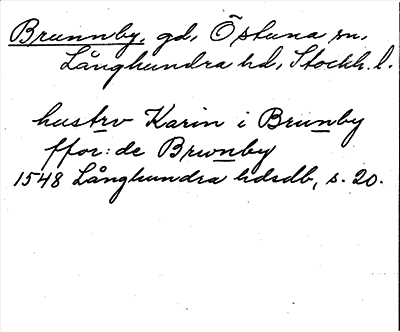 Brunnby, gd, Östuna sn,
Långhundra hd, Stockh. l.
hustrv Karin i Brunby
ffor: de Brwnby
1548 Långhundra hdsdb, s. 20.